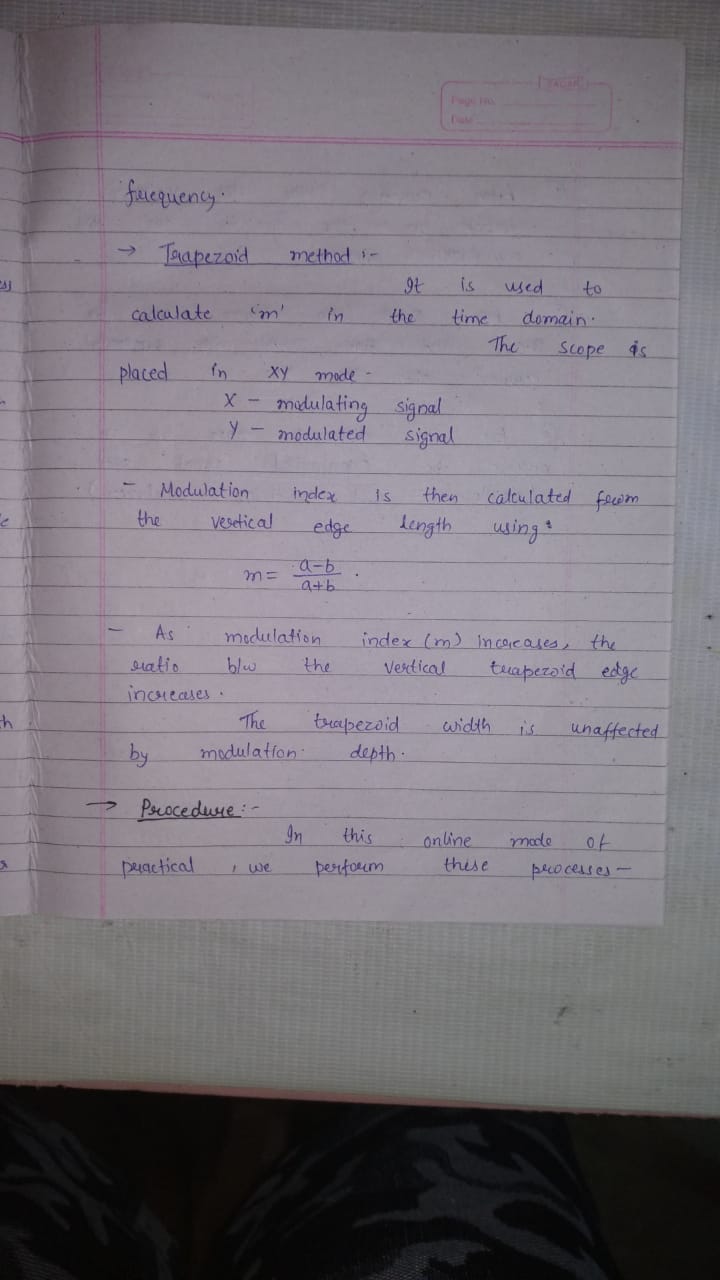 Page No.
Date
frequency.
→ Trapezoid method :-
It is used to
calculate 'm' in the time domain.
The scope is
placed in XY mode -
X - modulating signal
Y - modulated signal
- Modulation index is then calculated from
the vertical edge length using:
m = a-b
a+b .
- As modulation index (m) increases, the
ratio b/w the vertical trapezoid edge
increases.
The trapezoid width is unaffected
by modulation depth.
→ Procedure :-
In this online mode of
practical , we perform these processes -